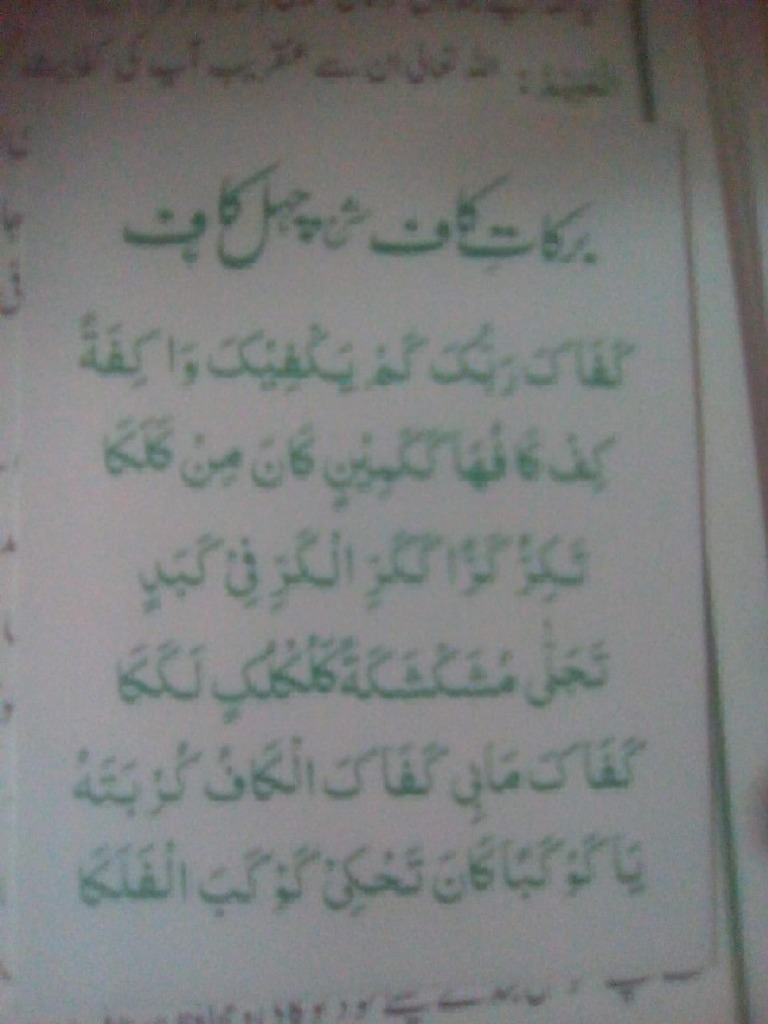 اللہ تعالیٰ ان سے عنقریب آپ کی کفایت
برکاتِ کاف شرح چہل کاف
كَفَاكَ رَبُّكَ كَمْ يَكْفِيْكَ وَاكِفَةً
كِفْكَافُهَا كَكَمِيْنٍ كَانَ مِنْ كَلَكَا
تَكِرُّ كَرًّا كَكَرِّ الْكَرِّ فِيْ كَبَدٍ
تَحَلّٰى مُشَكْشَكَةً كَلُكْلُكٍ لَكَكَا
كَفَاكَ مَابِي كَفَاكَ الْكَافُ كُرْبَتَهٗ
يَا كَوْكَبًا كَانَ تَحْكِيْ كَوْكَبَ الْفَلَكَا